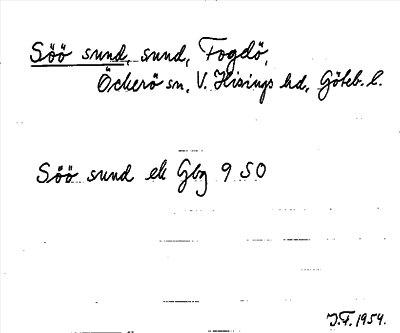 Söö sund, sund, Fogdö,
Öckerö sn, V. Hisings hd, Göteb. l.
Söö sund ek Gbg 9 SO
J.F. 1954.